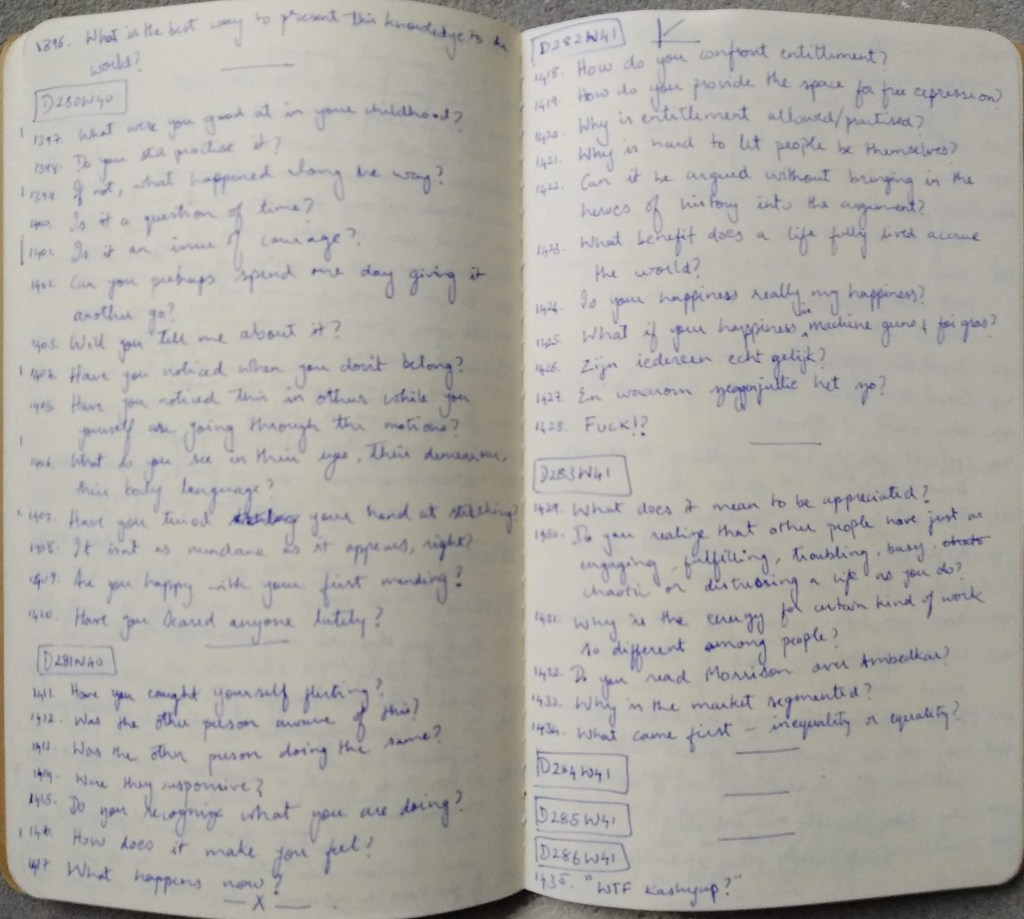 1396. What is the best way to present this knowledge to the
world?
D280W40
1397. What were you good at in your childhood?
1398. Do you still practise it?
1399. If not, what happened along the way?
1400. Is it a question of time?
1401. Is it an issue of courage?
1402. Can you perhaps spend one day giving it
another go?
1403. Will you tell me about it?
1404. Have you noticed when you don't belong?
1405. Have you noticed this in others while you
yourself are going through the motions?
1406. What do you see in their eyes, their demeanour,
their body language?
1407. Have you tried your hand at stitching?
1408. It isn't as mundane as it appears, right?
1409. Are you happy with your first mending?
1410. Have you scared anyone lately?
D281W40
1411. Have you caught yourself flirting?
1412. Was the other person aware of this?
1413. Was the other person doing the same?
1414. Were they responsive?
1415. Do you recognize what you are doing?
1416. How does it make you feel?
1417 What happens now?
— X —
D282W41
1418. How do you confront entitlement?
1419. How do you provide the space for free expression?
1420. Why is entitlement allowed/practised?
1421. Why is hard to let people be themselves?
1422. Can it be argued without bringing in the
heroes of history into the argument?
1423. What benefit does a life fully lived accrue
the world?
1424. Is your happiness really my happiness?
1425. What if your happiness is machine guns & foi gras?
1426. Zijn iedereen echt gelijk?
1427. En waarom zeggen jullie het zo?
1428. Fuck!?
D283W41
1429. What does it mean to be appreciated?
1430. Do you realize that other people have just as
engaging, fulfilling, troubling, busy,
chaotic or distressing a life as you do?
1431. Why is the energy for certain kind of work
so different among people?
1432. Do you read Morrison over Ambedkar?
1433. Why is the market segmented?
1434. What came first – inequality or equality?
D284W41
D285W41
D286W41
1435. "WTF Kashyap?"